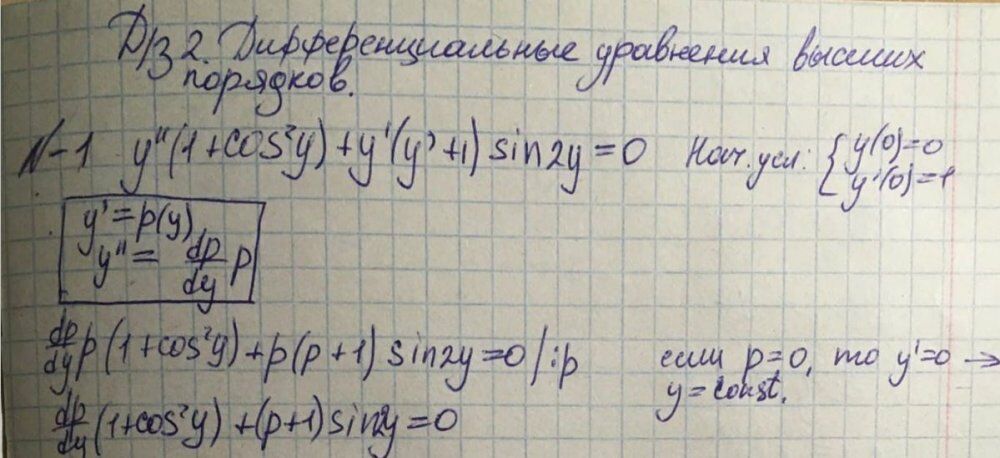 Д/З 2. Дифференциальные уравнения высших
порядков.
N-1 y''(1+cos²y)+y'(y'+1) sin2y=0 Нач. усл: { y(0)=0
y'(0)=1
y'=p(y)
y''= dp/dy p
dp/dy p(1+cos²y)+p(p+1) sin2y=0 /:p если p=0, то y'=0 →
y=const.
dp/dy (1+cos²y)+(p+1)sin2y=0